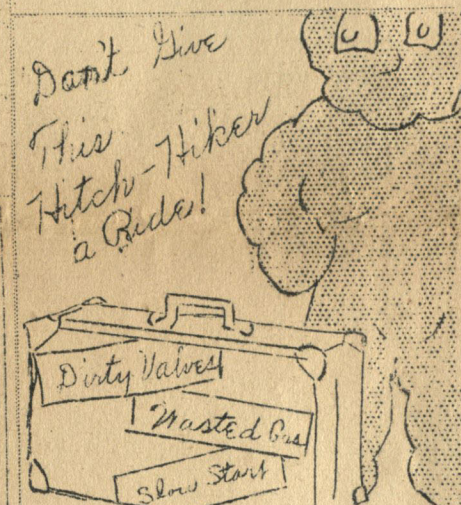 Don't Give
This
Hitch-Hiker
a Ride!
Dirty Valves
Wasted Gas
Slow Start